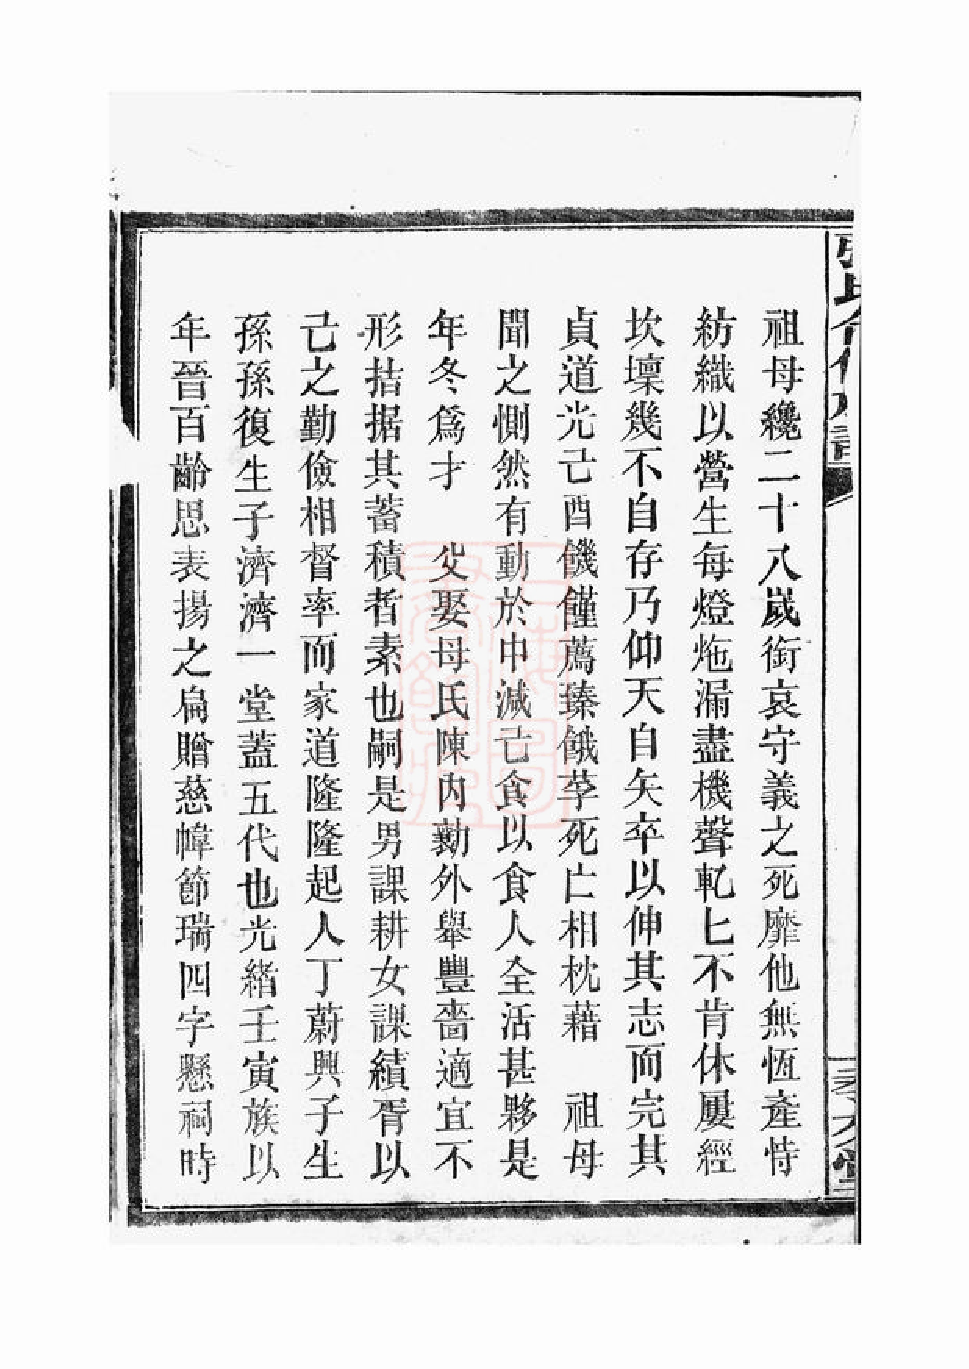 祖母纔二十八歲銜哀守義之死靡他無恆產恃
紡織以營生每燈灺漏盡機聲軋匕不肯休屢經
坎壈幾不自存乃仰天自矢卒以伸其志而完其
貞道光己酉饑饉薦臻餓莩死亡相枕藉　祖母
聞之惻然有動於中減己食以食人全活甚夥是
年冬爲才　父娶母氏陳內勷外舉豐嗇適宜不
形拮据其蓄積者素也嗣是男課耕女課績胥以
己之勤儉相督率而家道隆隆起人丁蔚興子生
孫孫復生子濟濟一堂蓋五代也光緒壬寅族以
年晉百齡思表揚之扁贈慈幃節瑞四字懸祠時